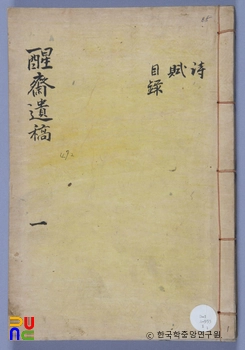 詩
賦
目錄
醒齋遺稿
一
35
PUNE
© 한국학중앙연구원